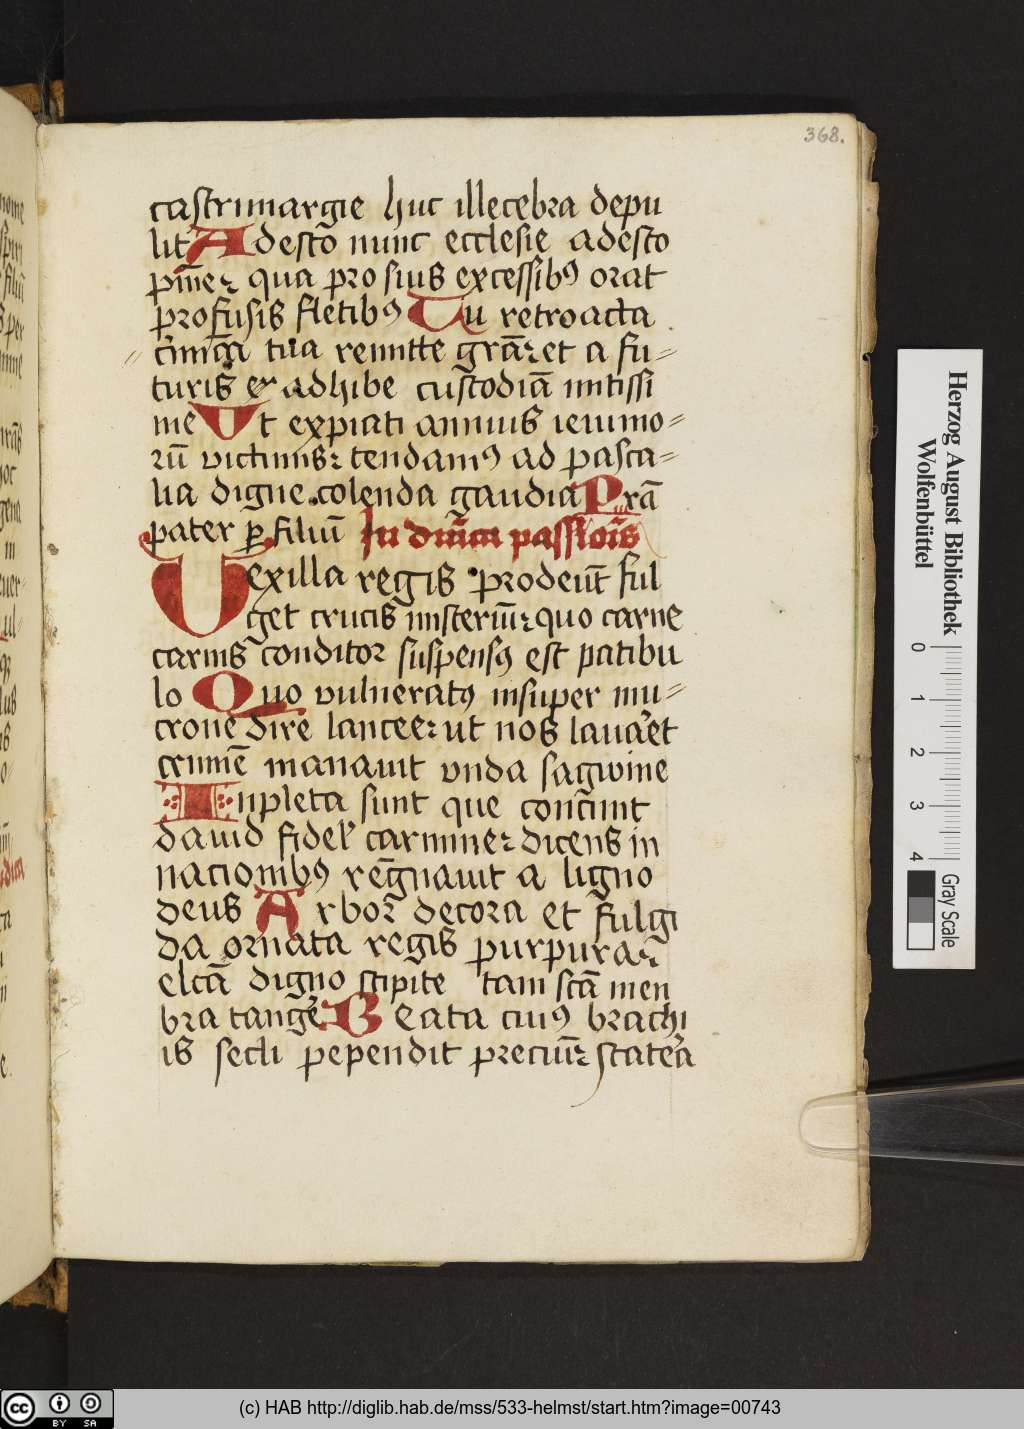 368.
castrimargie huc illecebra depu
lit Adesto nunc ecclesie adesto
pm̄e⁊ qua pro suis excessibꝰ orat
profusis fletibꝰ Tu retroacta
tua remitte grā⁊ et a fu=
turis adhibe custodiā mitissi
me Ut expiati annuis ieiunio=
rū victimis⁊ tendamꝰ ad pasca=
lia digne colenda gaudia Prā
pater ꝑ filiū In dn̄ica passiōis
Vexilla regis prodeūt ful
get crucis misteriū⁊ quo carne
carnis conditor suspensꝰ est patibu
lo Quo vulneratꝰ insuper mu=
crone dire lancee⁊ ut nos lauaret
crimīe manauit vnda sagwine
Inpleta sunt que concinit
dauid fidel' carmine⁊ dicens in
nacionibꝰ regnauit a ligno
deus Arbor decora et fulgi
da ornata regis purpura⁊
elcā digno stipite tam scā men
bra tangere Beata cuiꝰ brachi
is secli pependit preciū⁊ statera
Herzog August Bibliothek
Wolfenbüttel
0 1 2 3 4
Gray Scale
cc BY SA
(c) HAB http://diglib.hab.de/mss/533-helmst/start.htm?image=00743